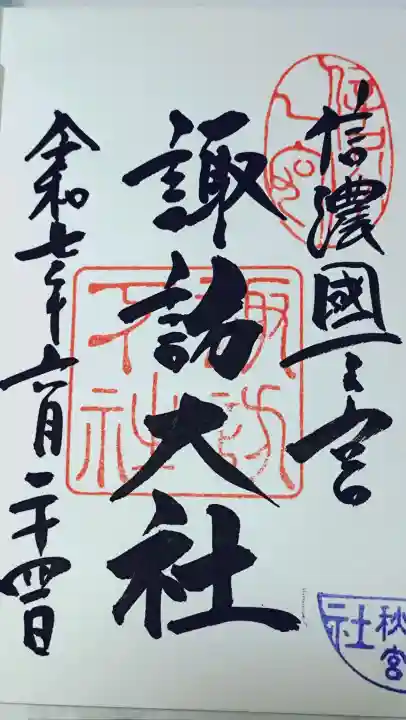 信濃國一之宮
諏訪大社
令和七年六月二十四日
諏訪下社
秋宮
社